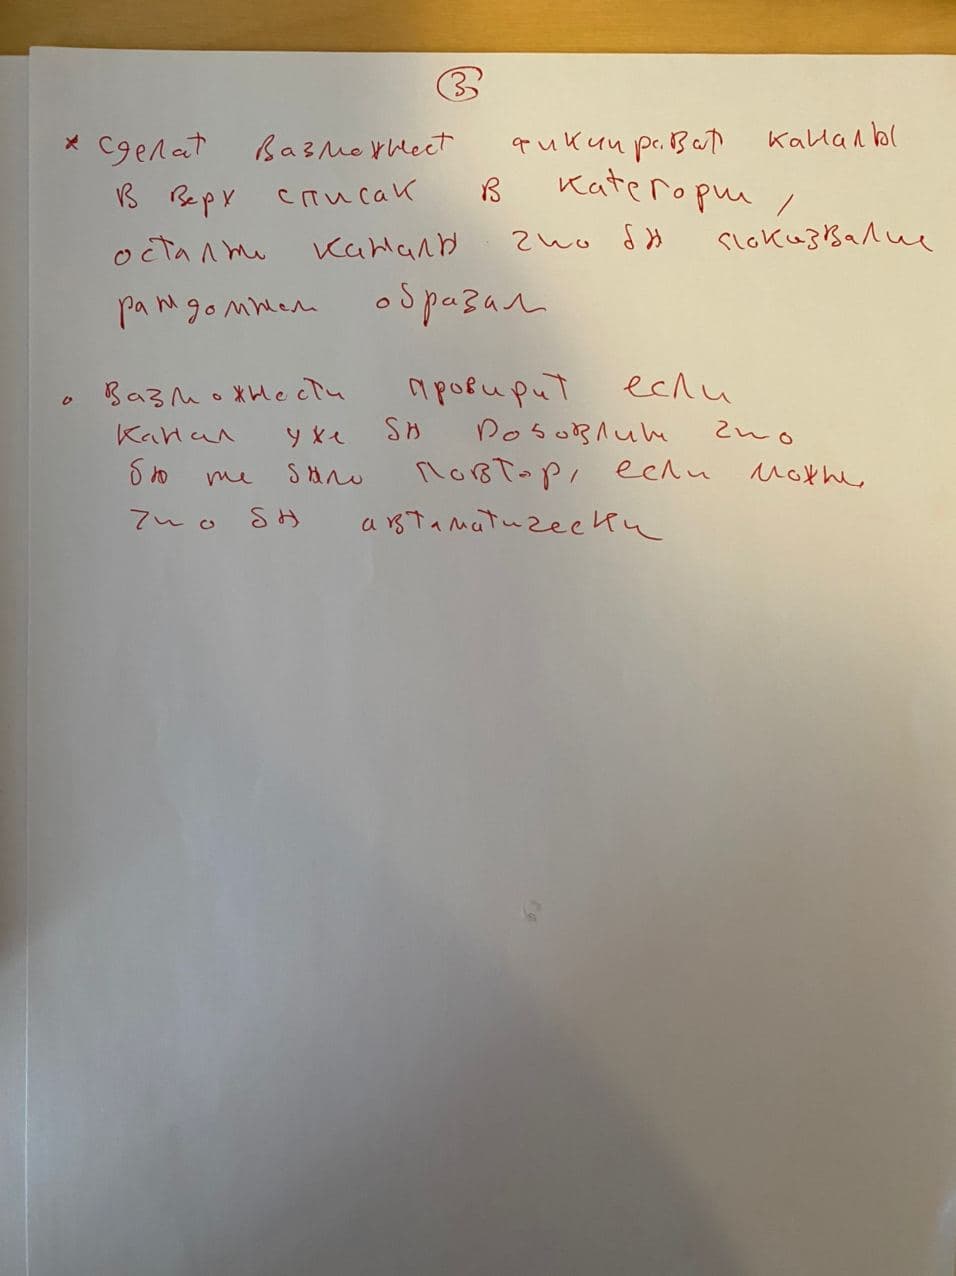 3
* Сделат вазможнест фиксироват каналы
в верх списак в категории,
осталны каналы что бы показвалис
рандомнем образам
• Вазможнести провирит если
канал уже бы добовлин что
бы не было повтор, если можне
что бы автаматически